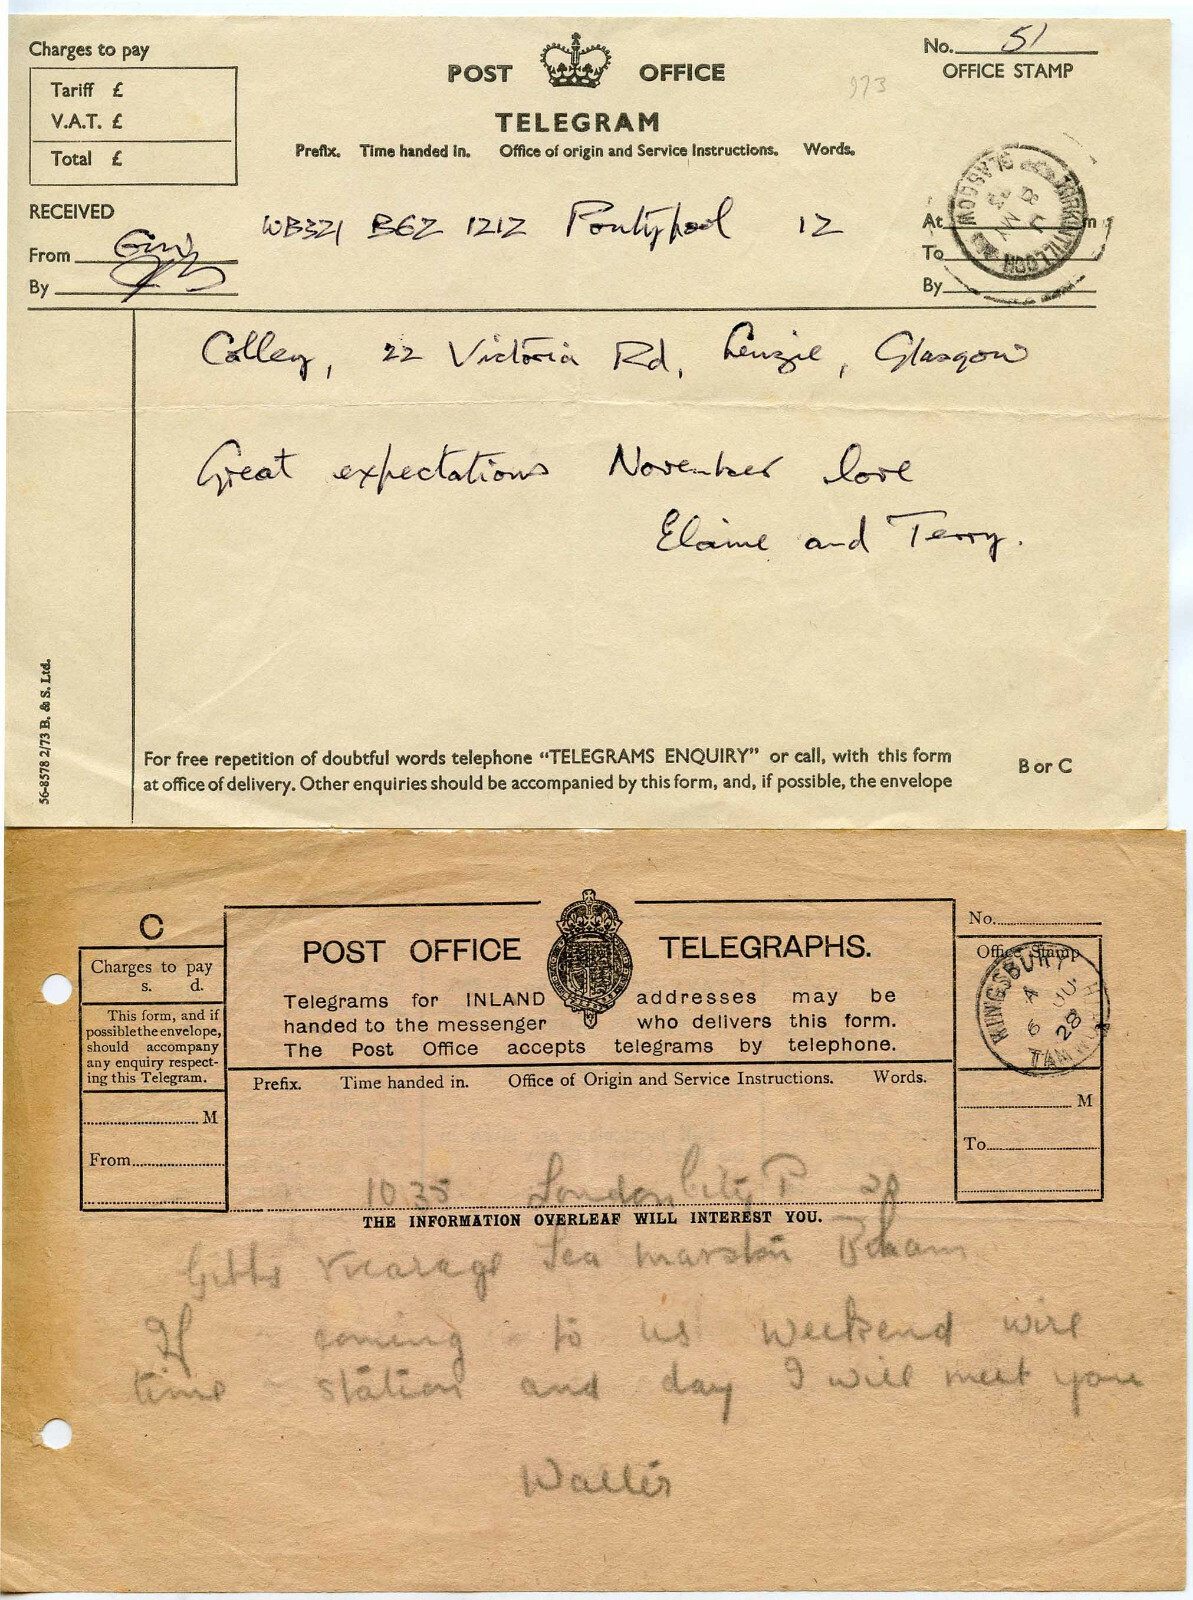 Charges to pay
Tariff £
V.A.T. £
Total £
POST OFFICE
TELEGRAM
No. 51
OFFICE STAMP
973
Prefix. Time handed in. Office of origin and Service Instructions. Words.
RECEIVED
From
By
WB321 BGZ 1212 Pontypool 12
At m
To
By
KIRKINTILLOCH GLASGOW
Colley, 22 Victoria Rd, Lenzie, Glasgow
Great expectations November love
Elaine and Terry.
56-8578 2/73 B. & S. Ltd.
For free repetition of doubtful words telephone “TELEGRAMS ENQUIRY” or call, with this form
at office of delivery. Other enquiries should be accompanied by this form, and, if possible, the envelope
B or C
C
Charges to pay
s. d.
This form, and if
possible the envelope,
should accompany
any enquiry respect-
ing this Telegram.
M
From
POST OFFICE TELEGRAPHS.
Telegrams for INLAND addresses may be
handed to the messenger who delivers this form.
The Post Office accepts telegrams by telephone.
Prefix. Time handed in. Office of Origin and Service Instructions. Words.
No.
Office Stamp
KINGSBURY
A
6 JU
28
TAMWORTH
M
To
10 35 London City P 20
THE INFORMATION OVERLEAF WILL INTEREST YOU.
Gibbs Vicarage Lea Marston
If coming to us weekend wire
time station and day I will meet you
Walter